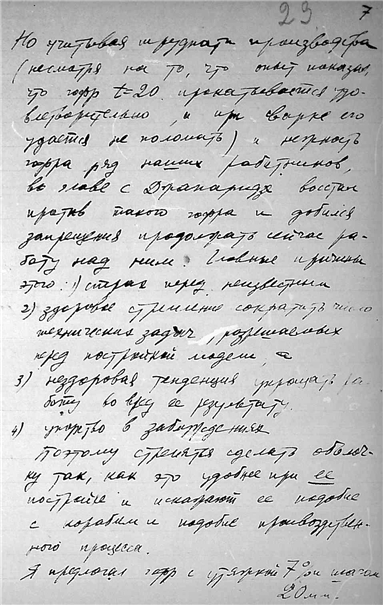 23 7
Но учитывая трудность производства
(несмотря на то, что опыт показал,
что гофр t=20 прокатывается удо-
влетворительно, и при сварке его
удается не поломать) и нежность
гофра ряд наших работников,
во главе с Джапаридзе восстал
против такого гофра и добился
запрещения продолжать сейчас ра-
боту над ним. Главные причины
этого: 1) страх перед неизвестным
2) здоровое стремление сократить число
технических задач, разрешаемых
перед постройкой модели, а
3) нездоровая тенденция упрощать ра-
боту во вред ее результату.
4) упорство в заблуждениях
Поэтому стремятся сделать оболоч-
ку так, как это удобнее при ее
постройке и искажают ее подобие
с кораблем и подобие производствен-
ного процесса.
Я предлагал гофр с утяжкой 7% при шагом
20 мм.